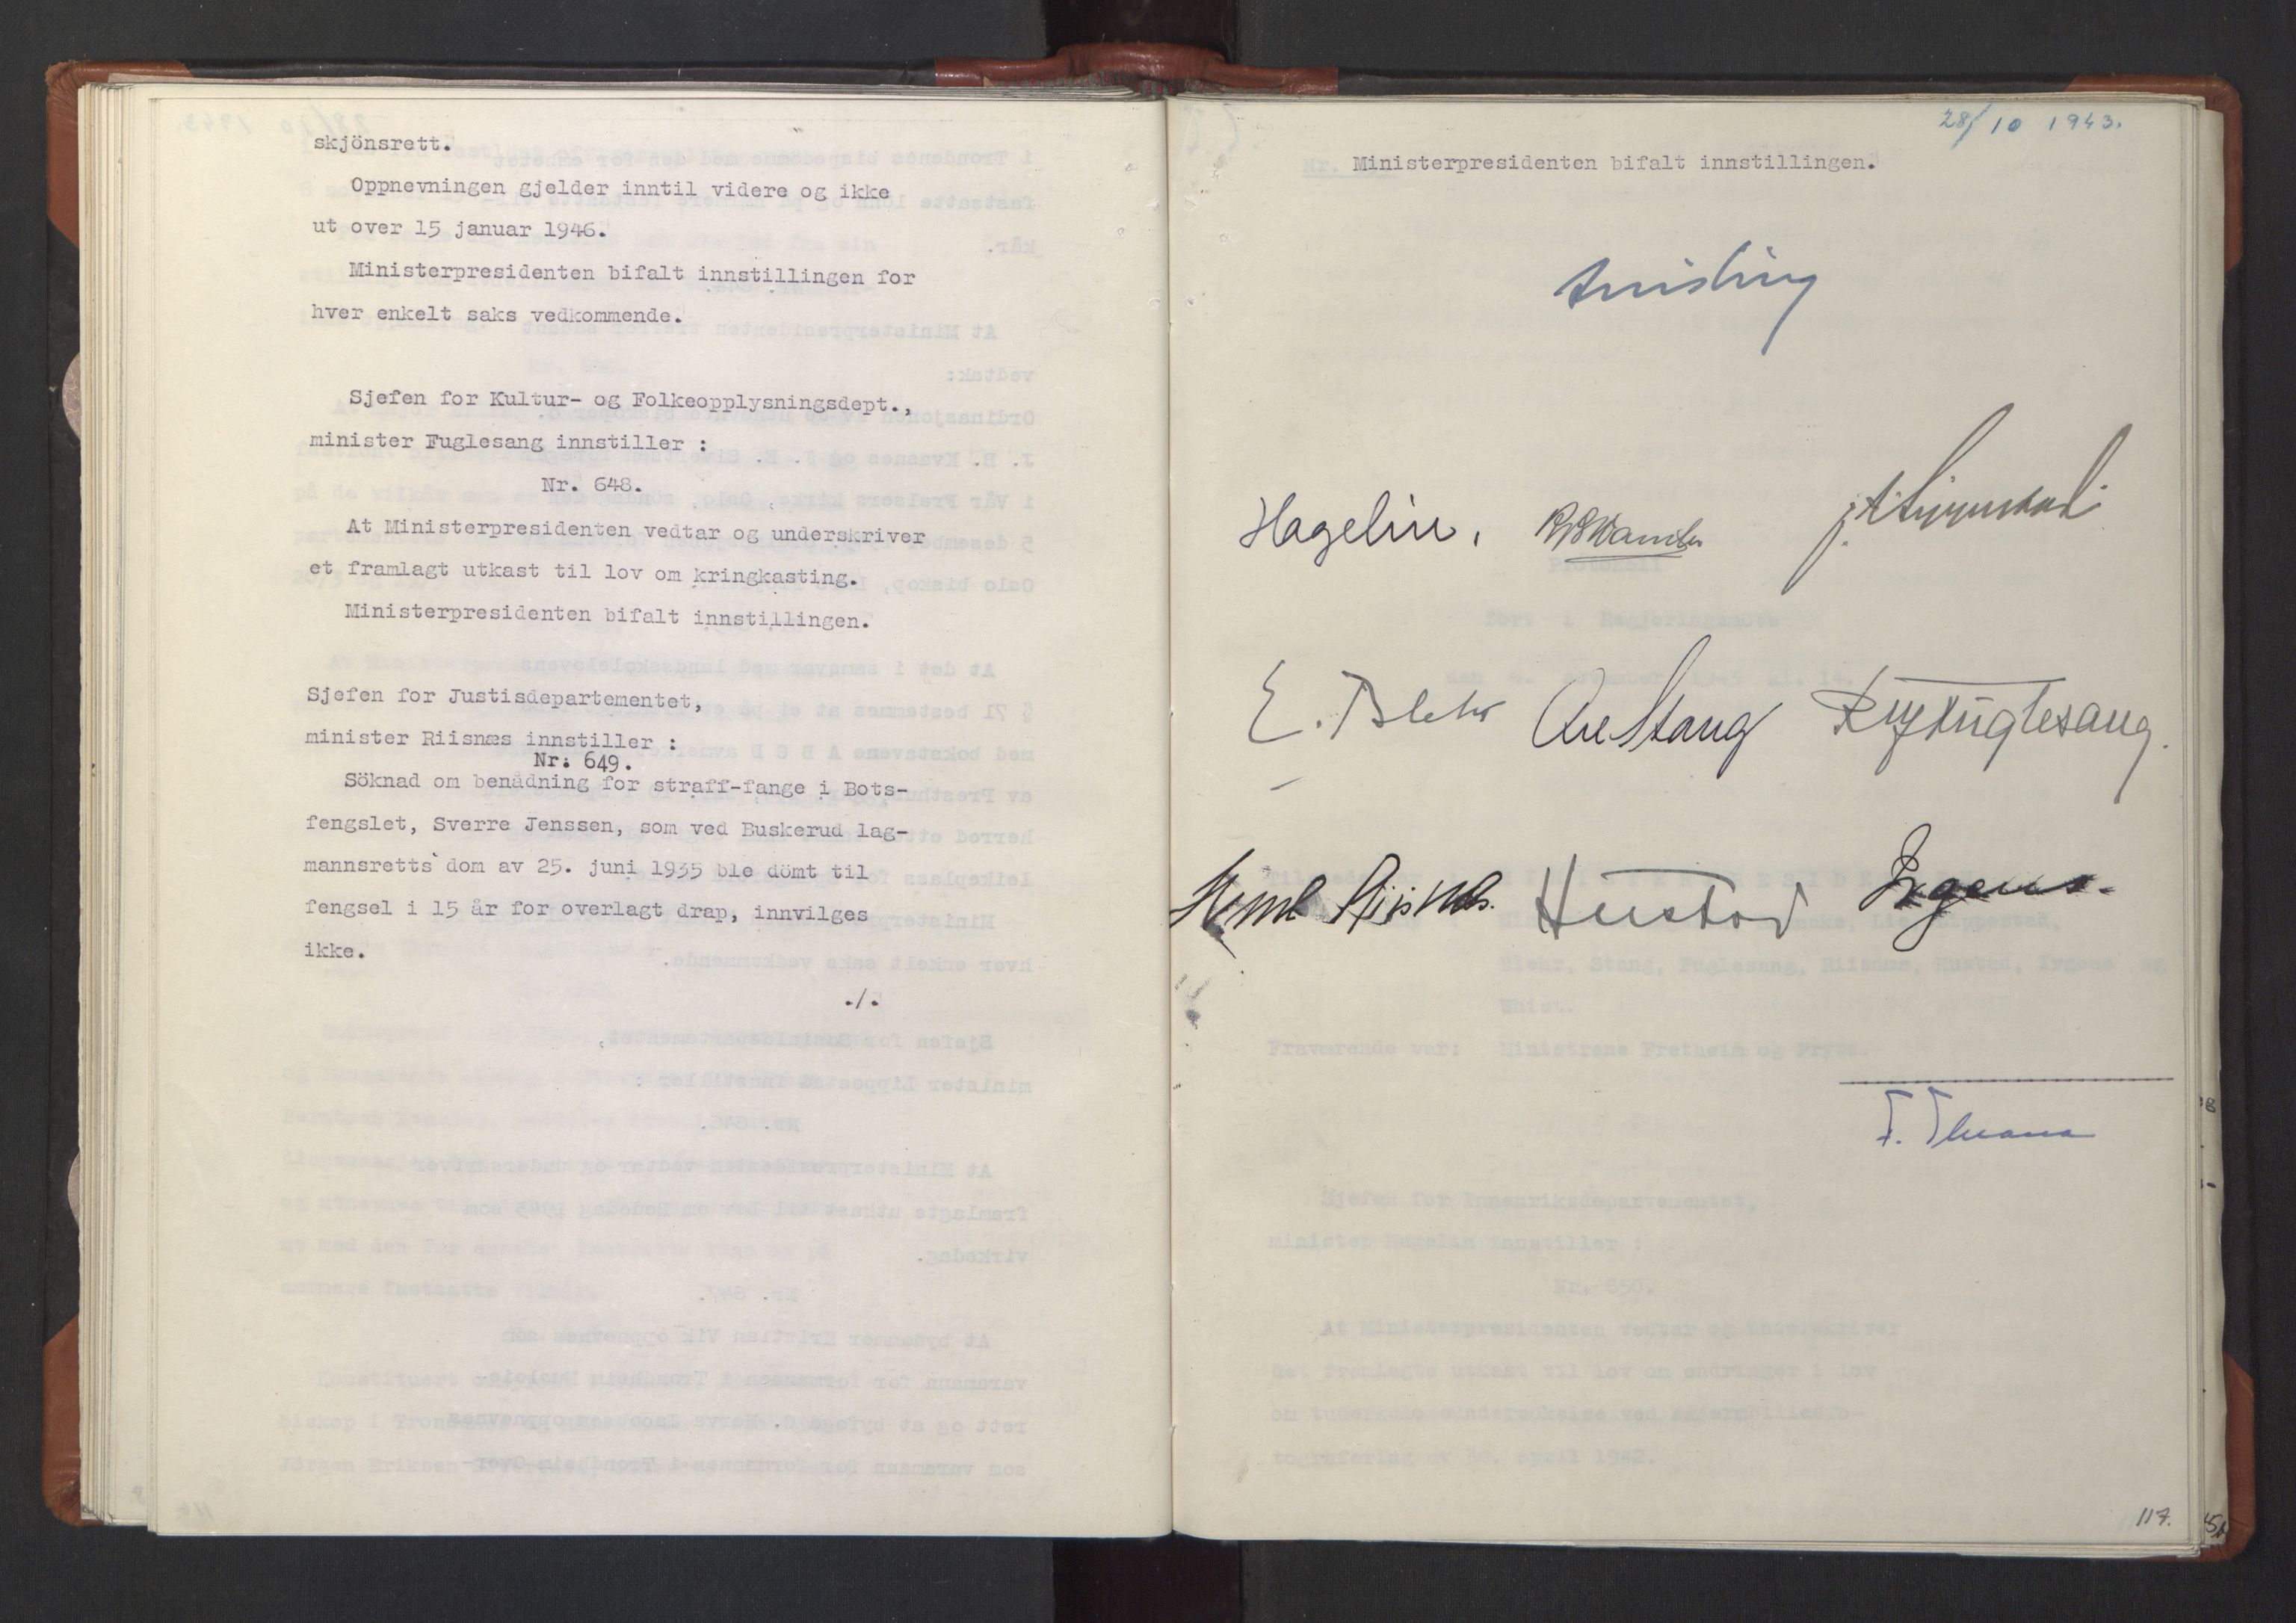 skjönsrett.
Oppnevningen gjelder inntil videre og ikke
ut over 15 januar 1946.
Ministerpresidenten bifalt innstillingen for
hver enkelt saks vedkommende.
Sjefen for Kultur- og Folkeopplysningsdept.,
minister Fuglesang innstiller :
Nr. 648.
At Ministerpresidenten vedtar og underskriver
et framlagt utkast til lov om kringkasting.
Ministerpresidenten bifalt innstillingen.
Sjefen for Justisdepartementet,
minister Riisnæs innstiller :
Nr. 649.
Söknad om benådning for straff-fange i Bots-
fengslet, Sverre Jenssen, som ved Buskerud lag-
mannsretts dom av 25. juni 1935 ble dömt til
fengsel i 15 år for overlagt drap, innvilges
ikke.
./.
28/10 1943.
Ministerpresidenten bifalt innstillingen.
Quisling
Hagelin.
E. Blehr Axel Stang Rolf Fuglesang.
Riisnæs. Hustad Irgens.
117.